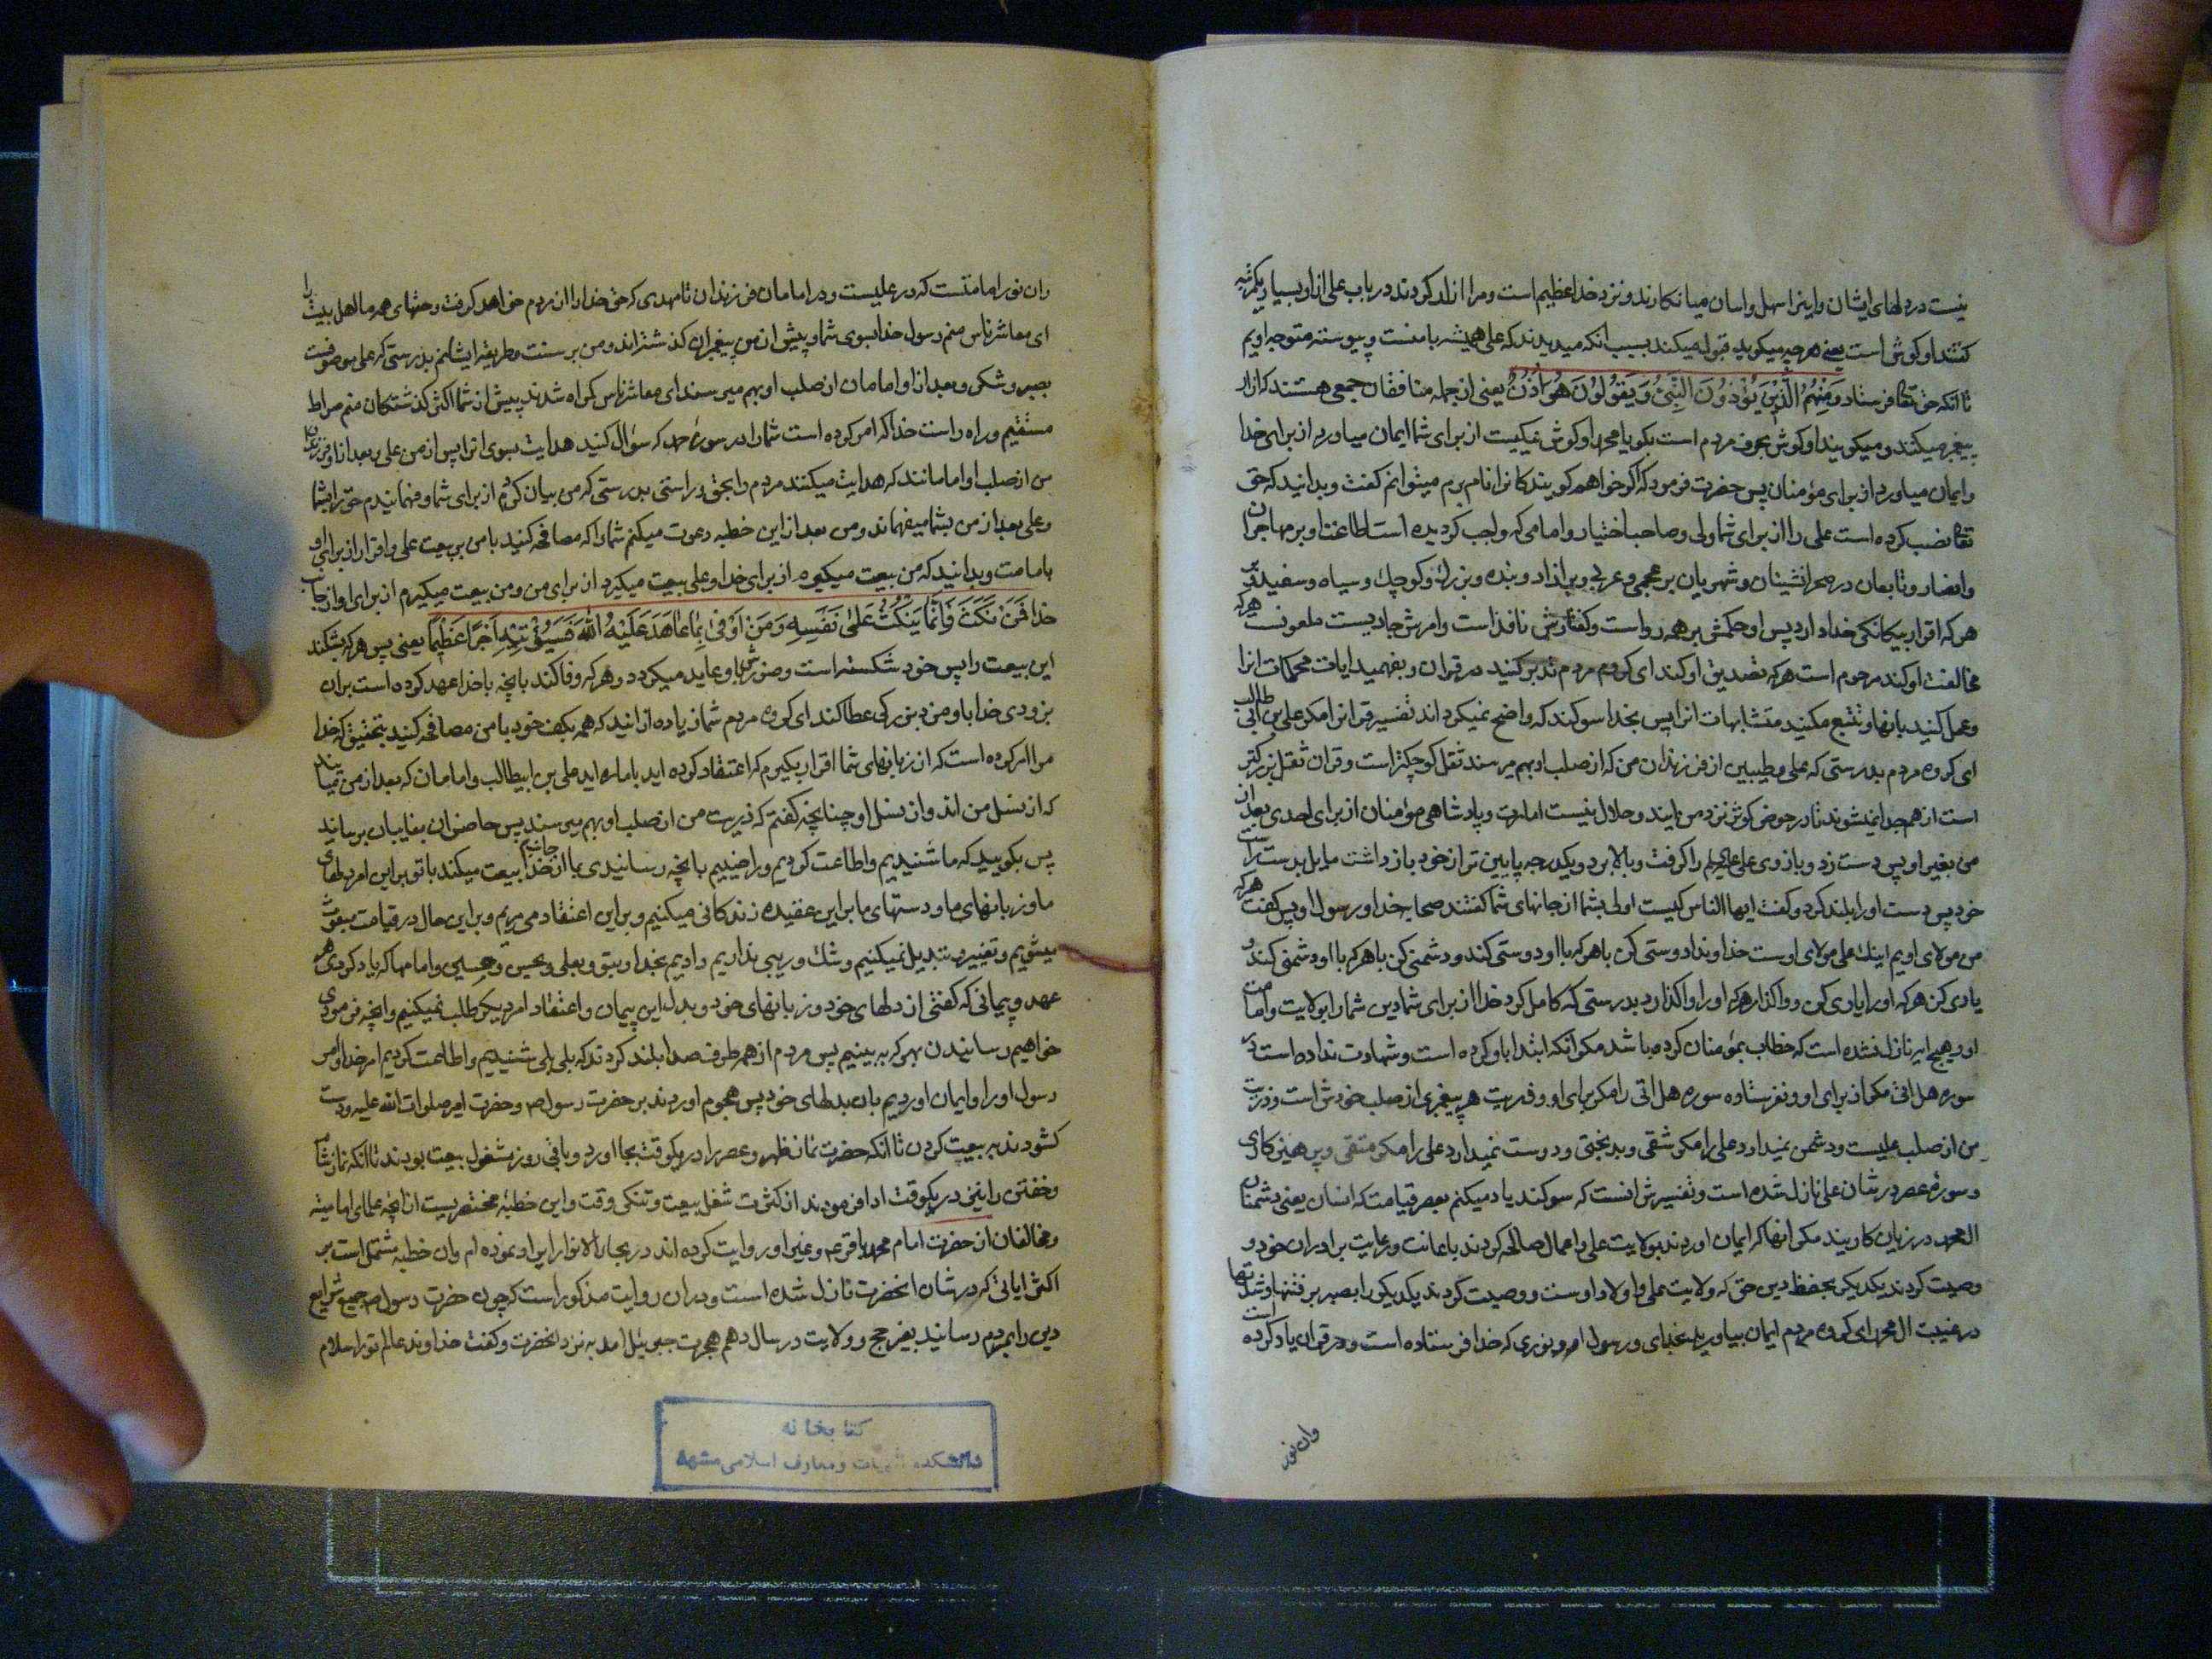 نیست در دلهای ایشان و اینرا سهل و اسان میانکارند و نزد خدا عظیم است و مرا ازار کردند در باب علی از او بسیار یکمرتبه
کفتند او کوش است یعنی هر چه میکوید قبول میکند بسبب انکه میدیدند که علی همیشه با منست و پیوسته متوجه اویم
تا انکه حق تعالی فرستاد وَمِنْهُمُ الَّذِیْنَ یُؤْذُوْنَ النَّبِیَّ وَیَقُوْلُوْنَ هُوَ اُذُنٌ یعنی از جمله منافقان جمعی هستند که ازار
پیغمبر میکنند و میکویند او کوش بحرف مردم است بکو یا محمد او کوش نیکیست از برای شما ایمان میاورد از برای خدا
و ایمان میاورد از برای مؤمنان پس حضرت فرمود که اکر خواهم کویندکانرا نام برم میتوانم کفت و بدانید که حق
تعالی نصب کرده است علی را از برای شما ولی و صاحب اختیار و امامی که واجب کردیده است اطاعت او بر مهاجران
و انصار و تابعان در صحرا نشینان و شهریان بر عجمی و عربی و بر ازاد و بنده و بزرك و کوچك و سیاه و سفید و بر
هر که اقرار بیکانکی خدا دارد پس او حکمش بر همه رواست و کفتارش نافذ است و امرش جاریست ملعونست هر که
مخالفت او کند مرحوم است هر که تصدیق او کند ای کروه مردم تدبر کنید در قران و بفهمید ایات محکمات انرا
و عمل کنید بانها و تتبع مکنید متشابهات انرا پس بخدا سوکند که واضح نمیکرداند تفسیر قرانرا مکر علی بن ابی طالب
ای کروه مردم بدرستی که علی و طیبین از فرزندان من که از صلب او بهم میرسند ثقل کوچکتر است و قران ثقل بزرکتر
است از هم جدا نمیشوند تا در حوض کوثر نزد من ایند و حلال نیست امارت و پادشاهی مؤمنان از برای احدی بعد از
من بغیر او پس دست زد و بازوی علی علیه السلم را کرفت و بالا برد و یکدرجه پایین تر از خود باز داشت مایل بدست راست
خود پس دست او را بلند کرد و کفت ایها الناس کیست اولی بشما از جانهای شما کفتند صحابه خدا و رسول او پس کفت هر که
من مولای اویم اینك علی مولای اوست خداوندا دوستی کن با هر که با او دوستی کند و دشمنی کن با هر که با او دشمنی کند و
یاری کن هر که او را یاری کند و واکذار هر که او را واکذارد بدرستی که کامل کرد خدا از برای شما دین شما را بولایت و امامت
او و هیچ ایه نازل نشده است که خطاب بمؤمنان کرده باشد مکر انکه ابتدا باو کرده است و شهادت نداده است در
سوره هل اتی مکر از برای او و نفرستاده سوره هل اتی را مکر برای او و ذریت هر پیغمبری از صلب خودش است و ذریت
من از صلب علیست و دشمن نمیدارد علی را مکر شقی و بدبختی و دوست نمیدارد علی را مکر متقی و پرهیزکاری
و سورهٔ عصر در شان علی نازل شده است و تفسیرش انست که سوکند یاد میکنم بعصر قیامت که انسان یعنی دشمنان
ال محمد در زیان کارند مکر انها که ایمان اوردند بولایت علی و اعمال صالحه کردند باعانت و رعایت برادران خود و
وصیت کردند یکدیکر بحفظ دین حق که ولایت علی و اولاد اوست و وصیت کردند یکدیکر را بصبر بر فتنها و شدتها
در غیبت ال محمد ای کروه مردم ایمان بیاورید بخدای و رسول او و نوری که خدا فرستاده است و در قران یاد کرده است
وان نور
وان نور امامتست که در علیست و در امامان فرزندان تا مهدی که حق خدا را از مردم خواهد کرفت و حقهای همه ما اهل بیت را
ای معاشر ناس منم رسول خدا بسوی شما و پیش از من پیغمبران کذشته اند و من بر سنت و طریقه ایشانم بدرستی که علی موصوفست
بصبر و شکر و بعد از او امامان از صلب او بهم میرسند ای معاشر ناس کمراه شدند پیش از شما اکثر کذشتکان منم صراط
مستقیم و راه راست خدا که امر کرده است شما را در سورهٔ حمد که سؤال کنید هدایت بسوی انرا پس از من علی و بعد از او فرزندان
من از صلب او امامانند که هدایت میکنند مردم را بحق و راستی بدرستی که من بیان کردم از برای شما و فهمانیدم حق را بشما
و علی بعد از من بشما میفهماند و من بعد از این خطبه دعوت میکنم شما را که مصافحه کنید با من بر بیعت علی و اقرار از برای او
بامامت و بدانید که من بیعت میکیرم از برای خدا و علی بیعت میکیرد از برای من و من بیعت میکیرم از برای او از جانب
خدا فَمَنْ نَکَثَ فَاِنَّمَا یَنْکُثُ عَلٰی نَفْسِهِ وَمَنْ اَوْفٰی بِمَا عَاهَدَ عَلَیْهُ اللهَ فَسَیُؤْتِیْهِ اَجْرًا عَظِیْمًا یعنی پس هر که بشکند
این بیعت را پس خود شکسته است و ضررش باو عاید میکردد و هر که وفا کند بانچه با خدا عهد کرده است بران
بزودی خدا باو مزد بزرکی عطا کند ای کروه مردم شما زیاده ازانید که همه بکف خود با من مصافحه کنید بتحقیق که خدا
مرا امر کرده است که از زبانهای شما اقرار بکیرم که اعتقاد کرده اید بامارت علی بن ابیطالب و امامان که بعد از من میایند
که از نسل من اند و از نسل او چنانچه کفتم که ذریت من از صلب او بهم میرسند پس حاضران بغایبان برسانید
پس بکویید که ما شنیدیم و اطاعت کردیم و راضییم بانچه رسانیدی بما از جانب خدا بیعت میکنیم با تو براین امر بدلهای
ما و زبانهای ما و دستهای ما براین عقیده زندکانی میکنیم و براین اعتقاد می میریم و براین حال در قیامت مبعوث
میشویم و تغییر و تبدیل نمیکنیم و شك و ریبی نداریم و دادیم بخدا و بتو و بعلی و بحسن و حسین و امامها که یاد کردی هر
عهد و پیمانی که کفتی از دلهای خود و زبانهای خود و بدل این پیمان و اعتقاد امر دیکر طلب نمیکنیم و انچه فرمودی
خواهیم رسانیدن بهر که به بینیم پس مردم از همه طرف صدا بلند کردند که بلی بلی شنیدیم و اطاعت کردیم امر خدا و امر
رسول او را و ایمان اوردیم بان بدلهای خود پس هجوم اوردند بر حضرت رسول ص و حضرت امیر صلوات الله علیه و دست
کشودند بر بیعت کردن تا انکه حضرت نماز ظهر و عصر را در یکوقت بجا اورد و باقی روز مشغول بیعت بودند تا انکه نماز شام
و خفتن را نیز در یکوقت ادا فرمودند از کثرت شغل بیعت و تنکی وقت و این خطبهٔ مختصریست ازانچه علمای امامیه
و مخالفان از حضرت امام محمد باقر ع و غیر او روایت کرده اند در بحار الانوار ایراد نموده ام وان خطبه مشتمل است بر
اکثر ایاتی که در شان انحضرت نازل شده است و دران روایت مذکور است که چون حضرت رسول ص جمیع شرایع
دین را بمردم رسانید بغیر حج و ولایت در سال دهم هجرت جبرئیل امد به نزد انحضرت و کفت خداوند عالم تو را سلام
کتابخانه
دانشکده الهیات و معارف اسلامی مشهد